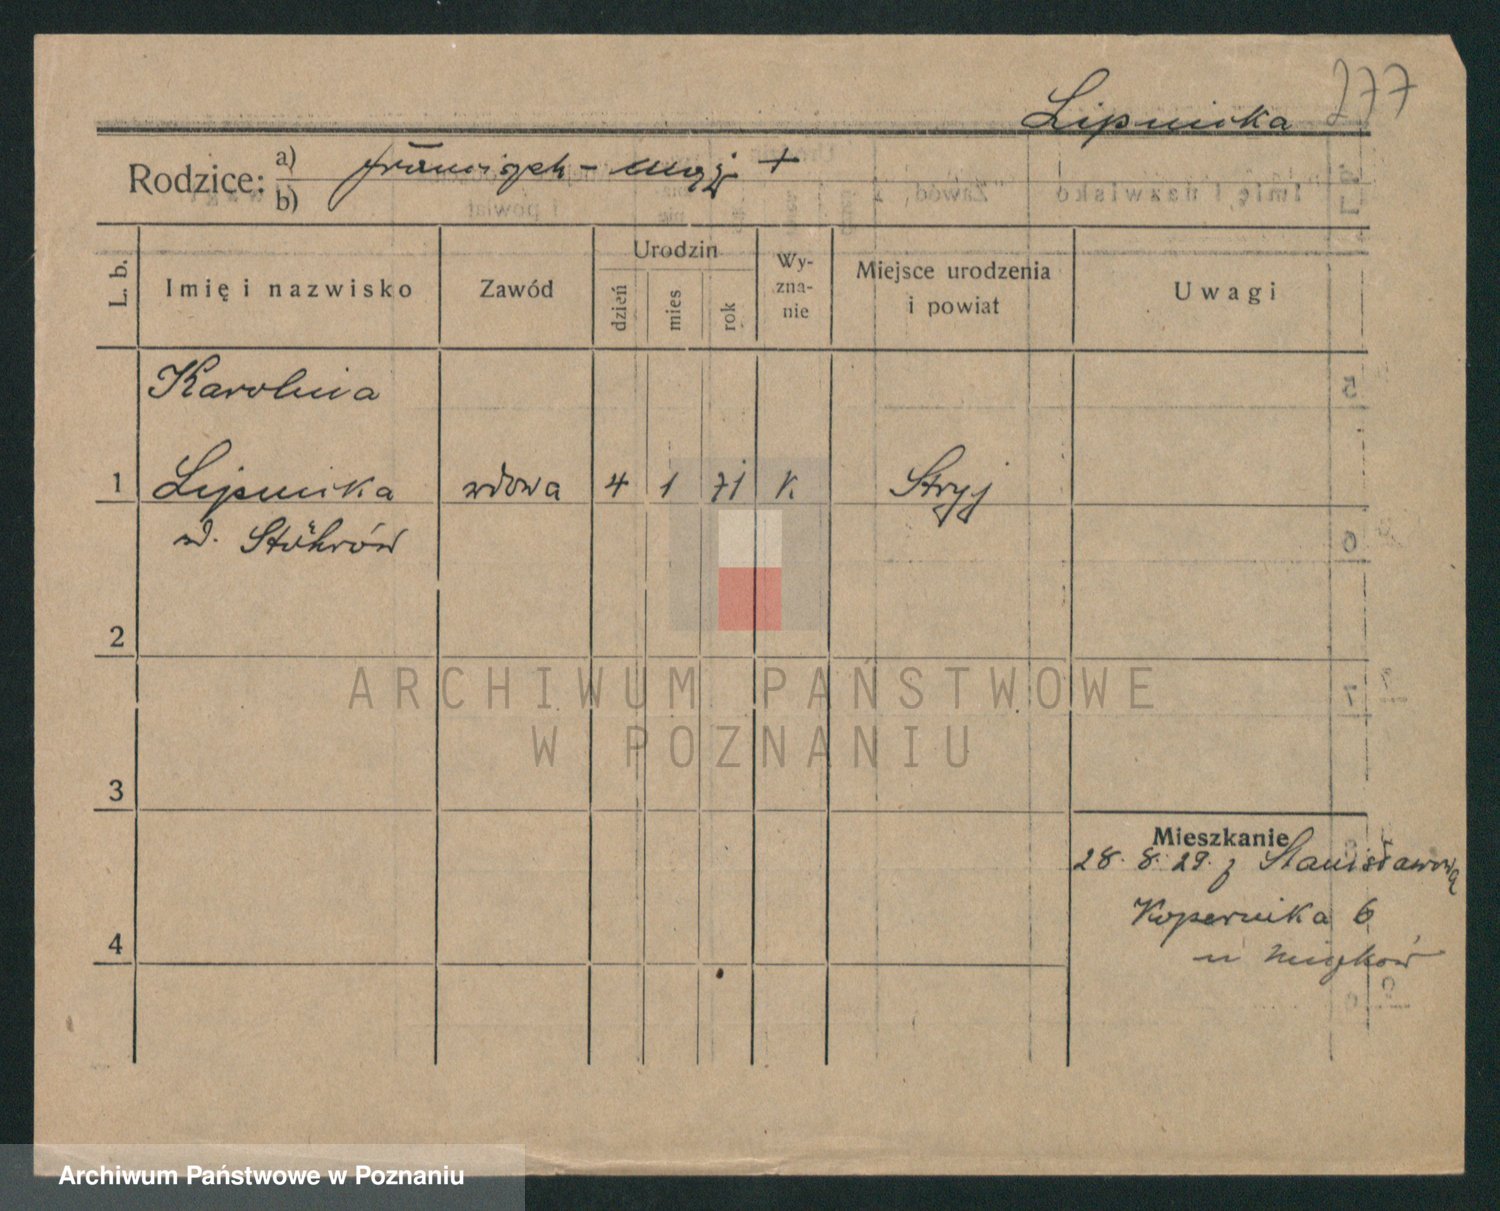 277
Lipnicka
Rodzice: a) Franciszek - mąż +
b)
L. b.
Imię i nazwisko
Zawód
Urodzin
dzień
mies
rok
Wy-
zna-
nie
Miejsce urodzenia
i powiat
Uwagi
Karolina
1 Lipnicka wdowa 4 1 71 K Stryj
d. Stöhrów
2
3
4
Mieszkanie
28. 8. 29. z Stanisławowa
Kopernika 6
ARCHIWUM PAŃSTWOWE
W POZNANIU
Archiwum Państwowe w Poznaniu